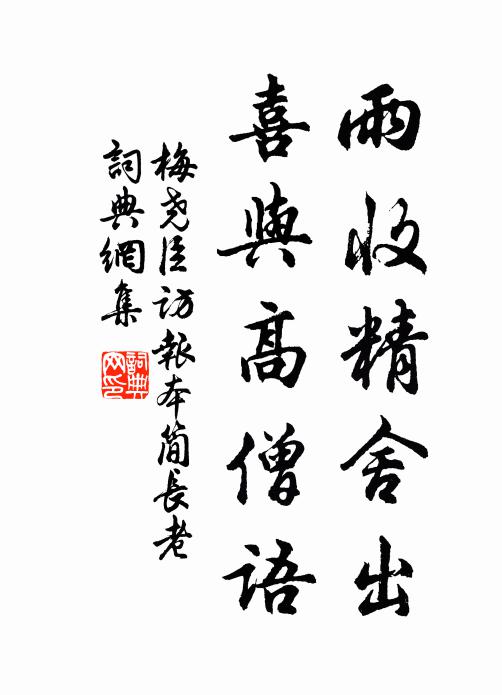 雨收精舍出
喜與高僧語
梅尧臣訪報本简長老
詞典網集
詞典
网印